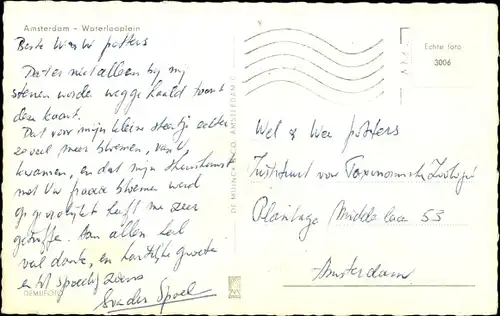 Amsterdam - Waterlooplein
Beste potters
Dat er niet alleen bij mij
stenen worden weggehaald toont
deze kaart.
Dat voor mijn kleine steentje echter
zoveel meer bloemen, van U
kwamen, en dat mijn thuiskomst
met Uw fraaie bloemen werd
opgevrolijkt heeft me zeer
getroffen. Aan allen heel
veel dank, en hartelijke groeten
en tot spoedig ziens
S. van der Spoel
DEMUFOTO
DE MUINCK & CO. AMSTERDAM C.
Echte foto
3006
Wel & Wee potters
Instituut voor Taxonomische Zoölogie
Plantage Middenlaan 53
Amsterdam